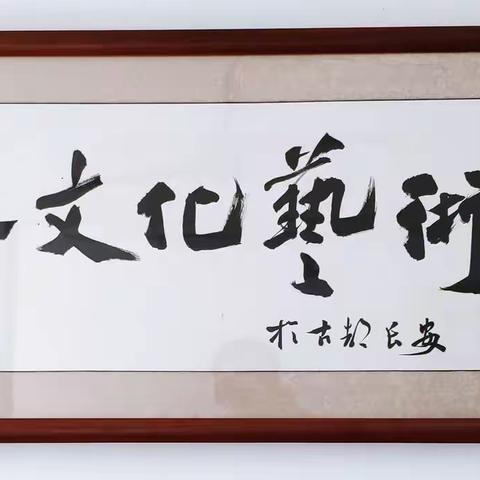 文化藝術
於古都長安